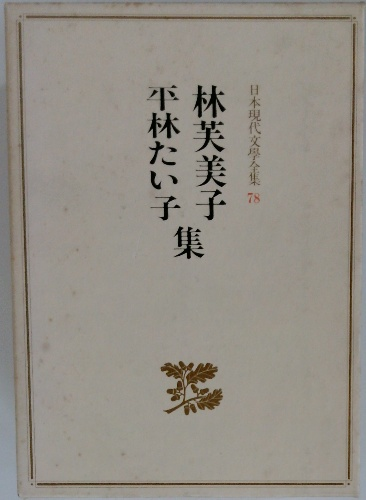 日本現代文學全集 78
林芙美子
平林たい子
集